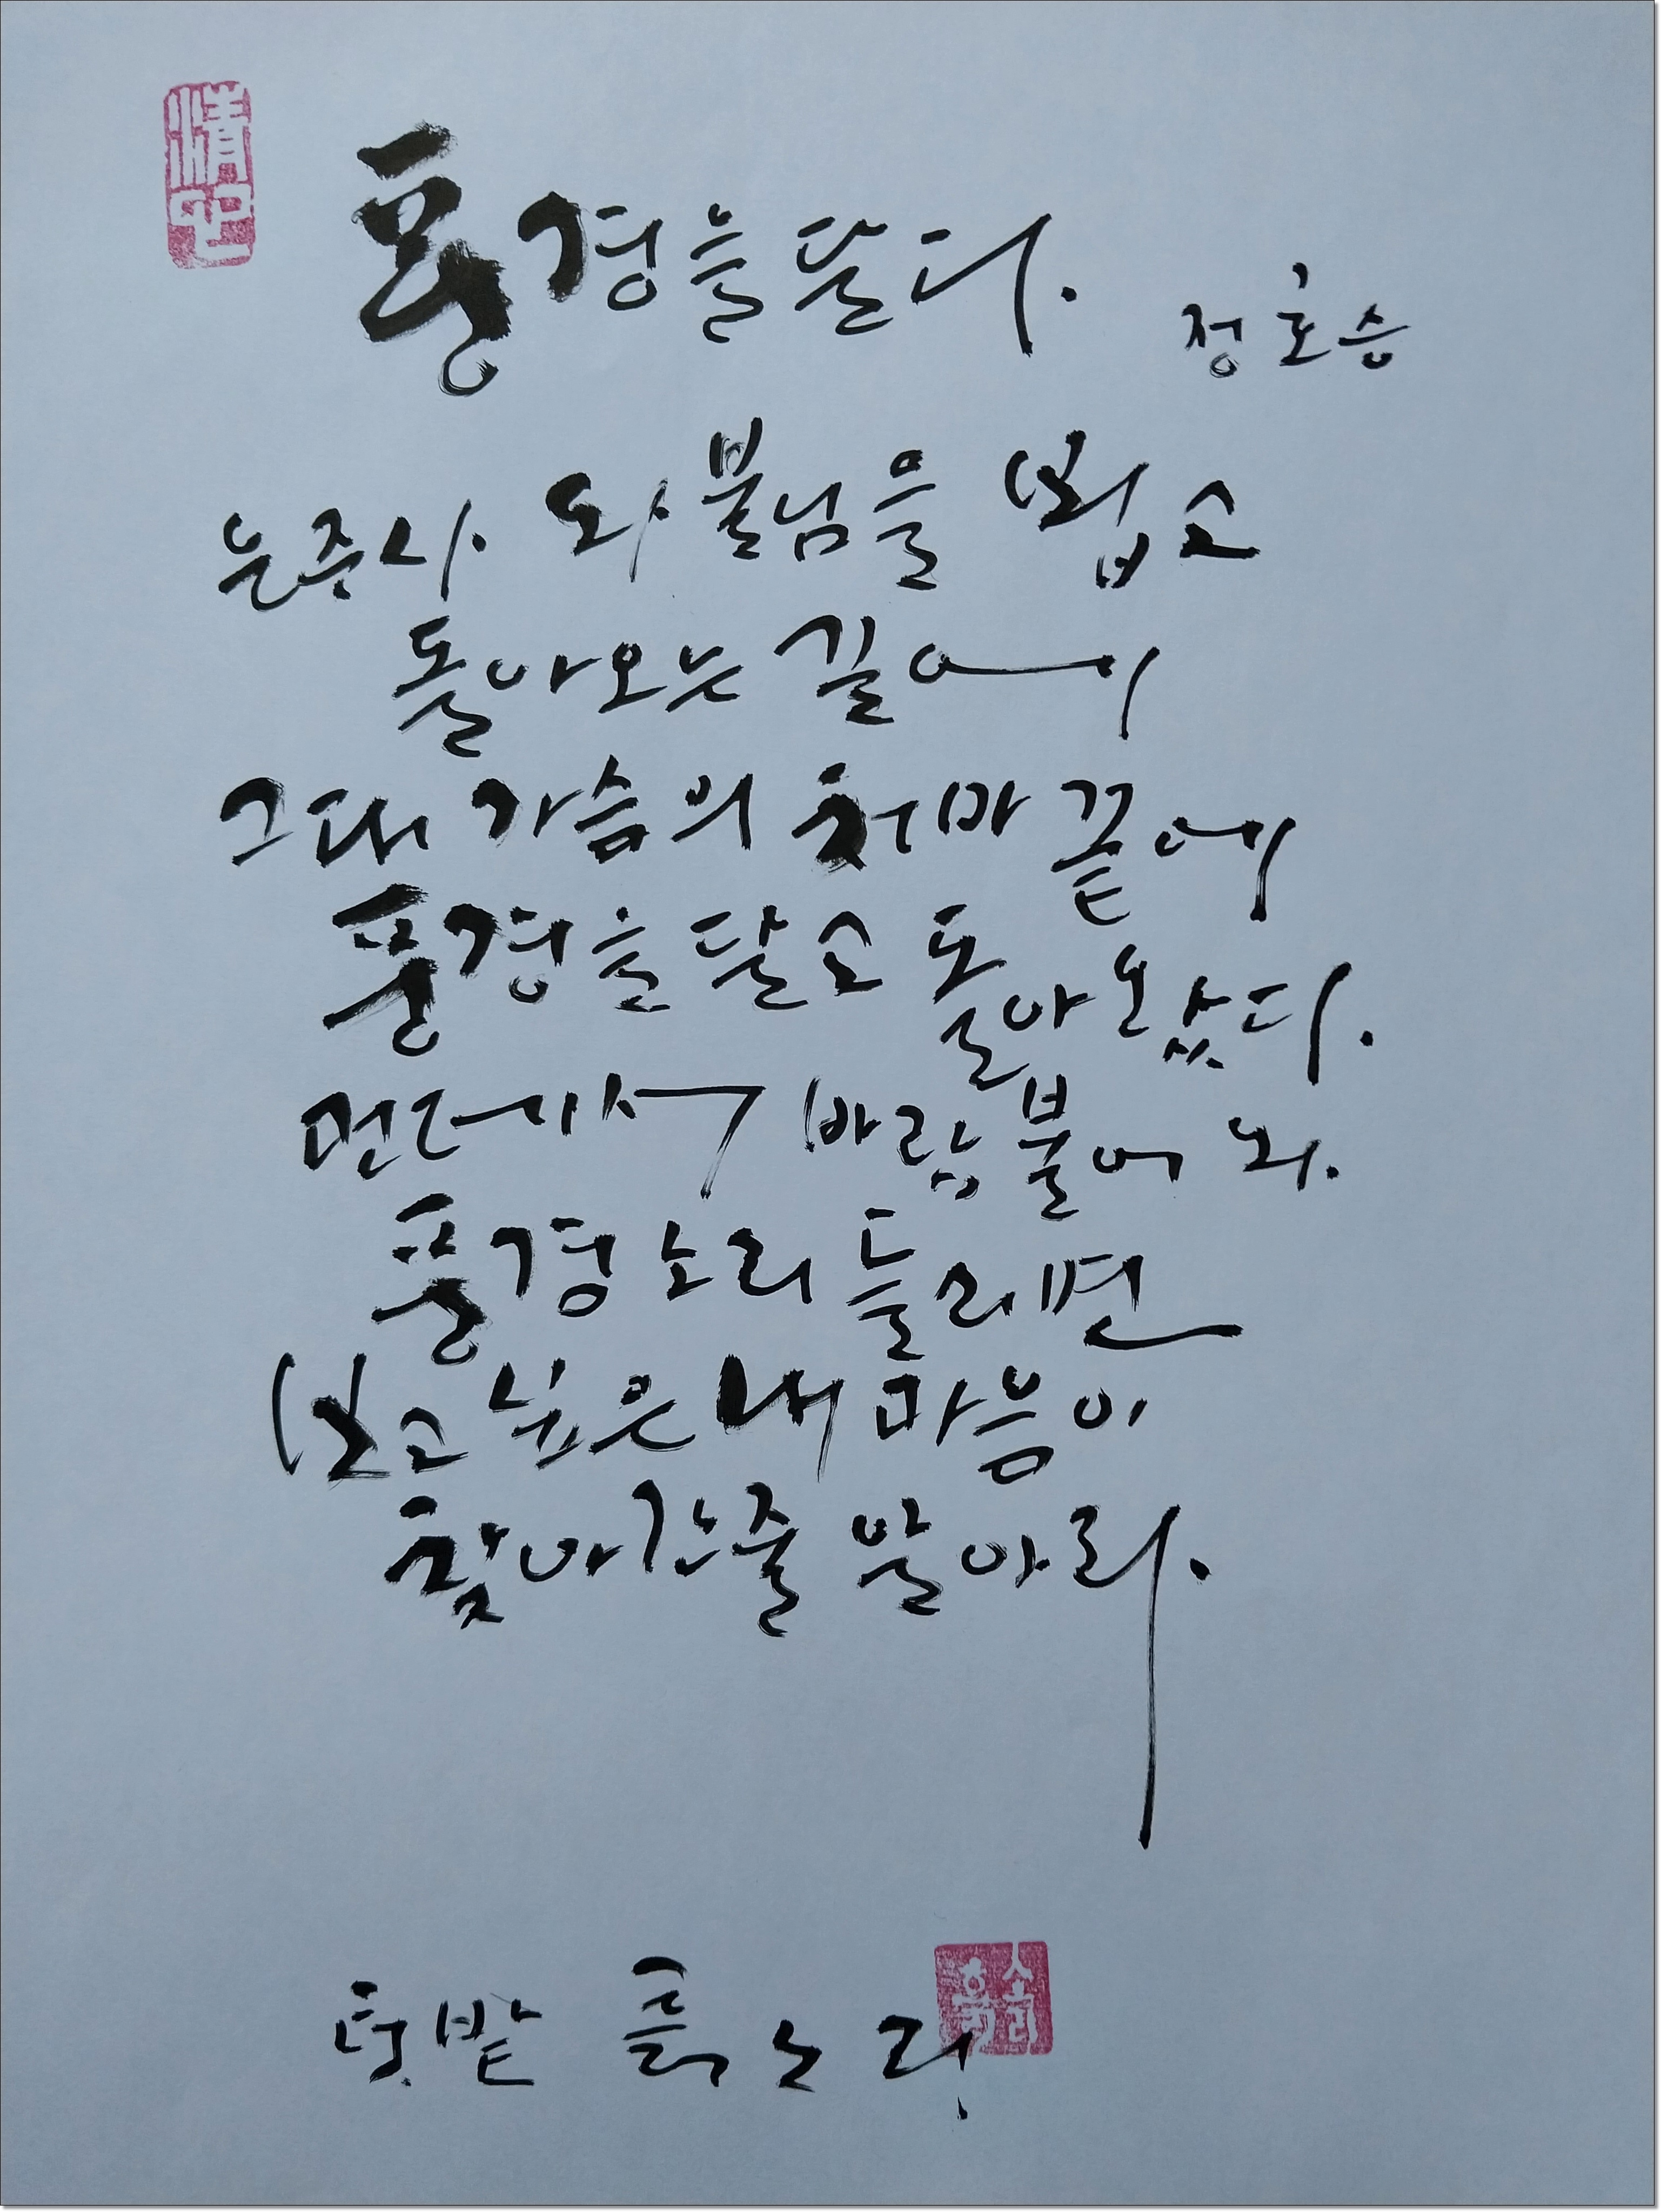 풍경을 달다.
정호승
운주사 와불님을 뵙고
돌아오는 길에
그대 가슴의 처마 끝에
풍경을 달고 돌아왔다.
먼데서 바람 불어와.
풍경 소리 들리면
보고 싶은 내 마음이
찾아간 줄 알아라.
텃밭 흙소리
흙소리